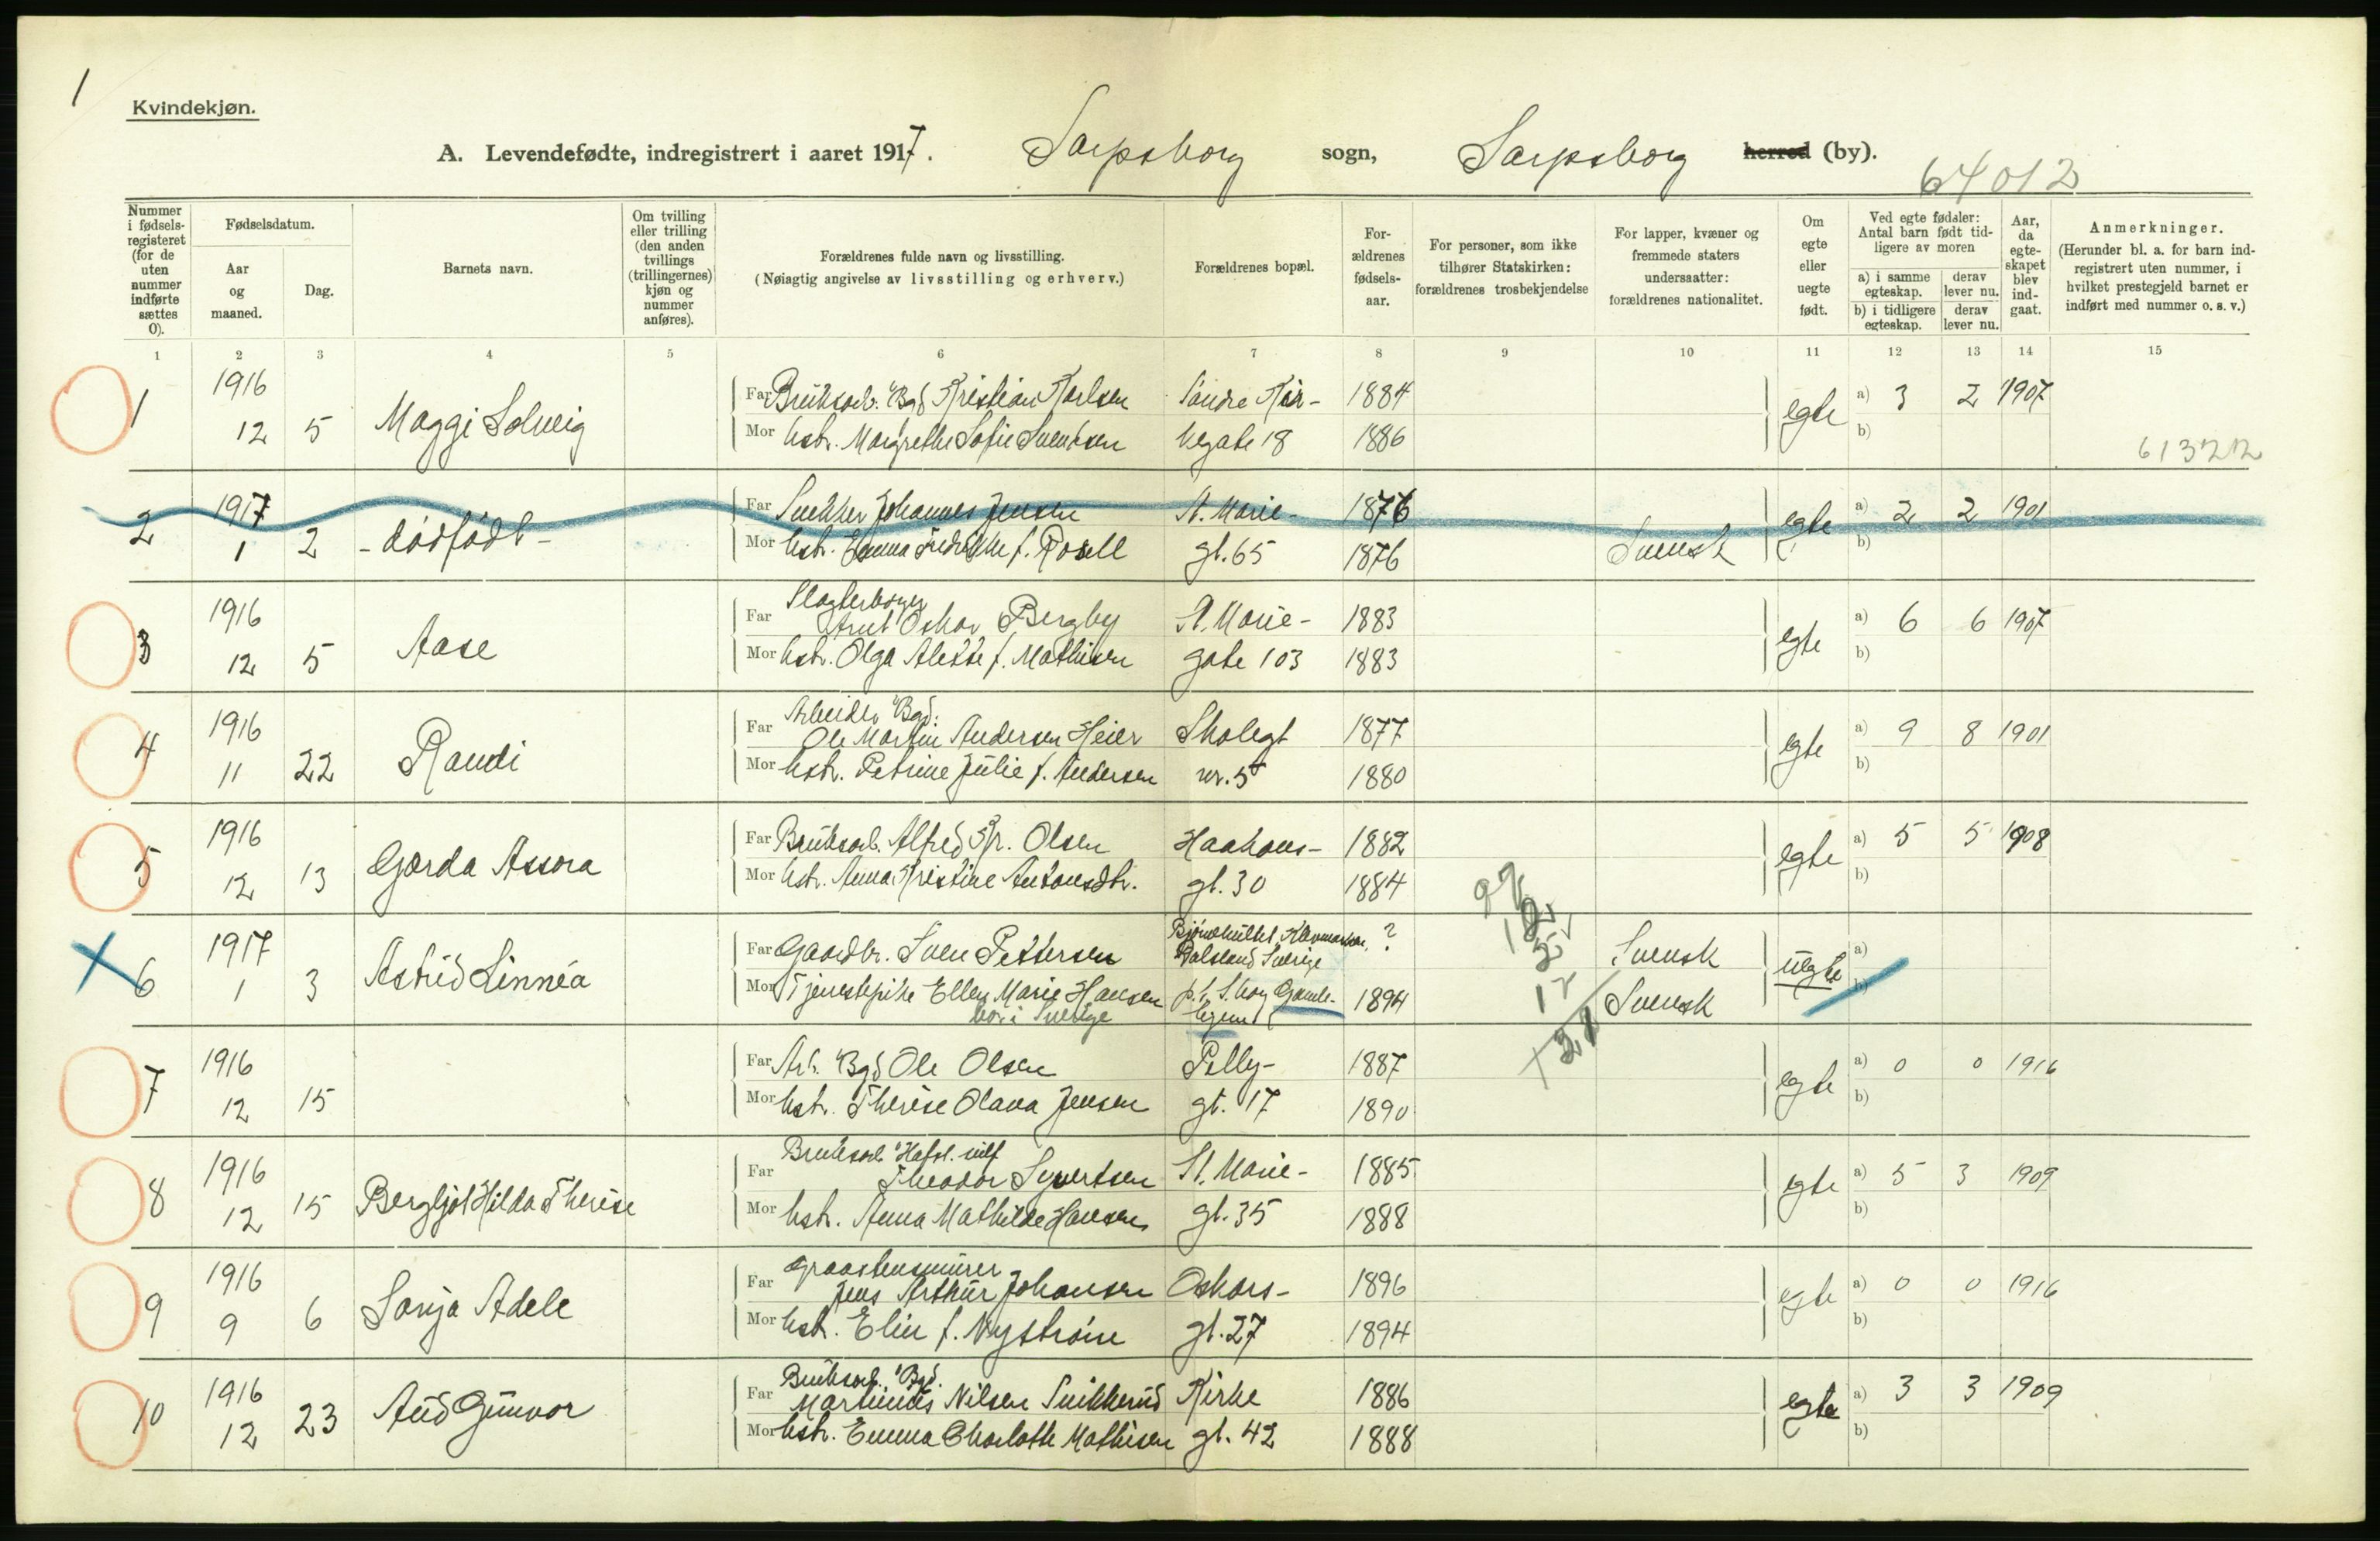 1
Kvindekjøn.
A. Levendefødte, indregistrert i aaret 1917. Sarpsborg sogn, Sarpsborg herred (by).
64012
Nummer i fødsels-registeret (for de uten nummer indførte sættes 0).
Fødselsdatum.
Aar og maaned.
Dag.
Barnets navn.
Om tvilling eller trilling (den anden tvillings (trillingernes) kjøn og nummer anføres).
Forældrenes fulde navn og livsstilling.
(Nøiagtig angivelse av livsstilling og erhverv.)
Forældrenes bopæl.
For-ældrenes fødsels-aar.
For personer, som ikke tilhører Statskirken: forældrenes trosbekjendelse
For lapper, kvæner og fremmede staters undersaatter: forældrenes nationalitet.
Om egte eller uegte født.
Ved egte fødsler: Antal barn født tid-ligere av moren
a) i samme egteskap. derav lever nu.
b) i tidligere egteskap. derav lever nu.
Aar, da egte-skapet blev ind-gaat.
Anmerkninger.
(Herunder bl. a. for barn ind-registrert uten nummer, i hvilket prestegjeld barnet er indført med nummer o. s. v.)
1 2 3 4 5 6 7 8 9 10 11 12 13 14 15
1 1916 12 5 Maggi Solveig
Far Bruksarb. Bgd Kristian Karlsen Søndre 1884 egte a) 3 2 1907
Mor hstr. Margrethe Sofie Svendsen vegate 18 1886 b)
61322
2 1917 1 2 - dødfødt -
Far Snekker Johannes Jensen St. Marie- 1876 egte a) 2 2 1901
Mor hstr. Emma Fredrikke f. Rosell gt. 65 1876 Svensk b)
3 1916 12 5 Aase
Far Slagterborger Arnt Oskar Bergby St. Marie- 1883 egte a) 6 6 1907
Mor hstr. Olga Alette f. Mathisen gate 103 1883 b)
4 1916 11 22 Randi
Far Arbeider Bgd. Ole Martin Andersen Heier Skolegt 1877 egte a) 9 8 1901
Mor hstr. Petrine Julie f. Andersen nr. 5 1880 b)
5 1916 12 13 Gerda Assora
Far Bruksarb. Alfred Kr. Olsen Haakons- 1882 egte a) 5 5 1908
Mor hstr. Anna Kristine Antonsdtr. gt. 30 1884 b)
6 1917 1 3 Astrid Linnéa
Far Gaardbr. Sven Pettersen Dalsland Sverige ? Svensk uegte a)
Mor Tjenestepike Ellen Marie Hansen bor i Sverige 1894 Svensk b)
7 1916 12 15
Far Arb. Bgd Ole Olsen Pelly- 1887 egte a) 0 0 1916
Mor hstr. Therese Olava Jensen gt. 17 1890 b)
8 1916 12 15 Bergljot Hilda Therese
Far Bruksarb. Hafsl. Theodor Syvertsen St. Marie- 1885 egte a) 5 3 1909
Mor hstr. Anna Mathilde Hansen gt. 35 1888 b)
9 1916 9 6 Sonja Adele
Far Graastensmurer Jens Arthur Johansen Oskars- 1896 egte a) 0 0 1916
Mor hstr. Elin f. Nystrøm gt. 27 1894 b)
10 1916 12 23 Aud Gunvor
Far Bruksarb. Bgd. Martinius Nilsen Snikkerud Kirke 1886 egte a) 3 3 1909
Mor hstr. Emma Charlotte Mathisen gt. 42 1888 b)